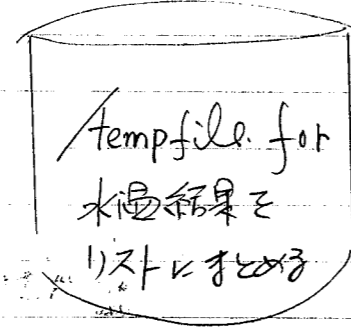 /tempfile. for
水温結果を
リストにまとめる